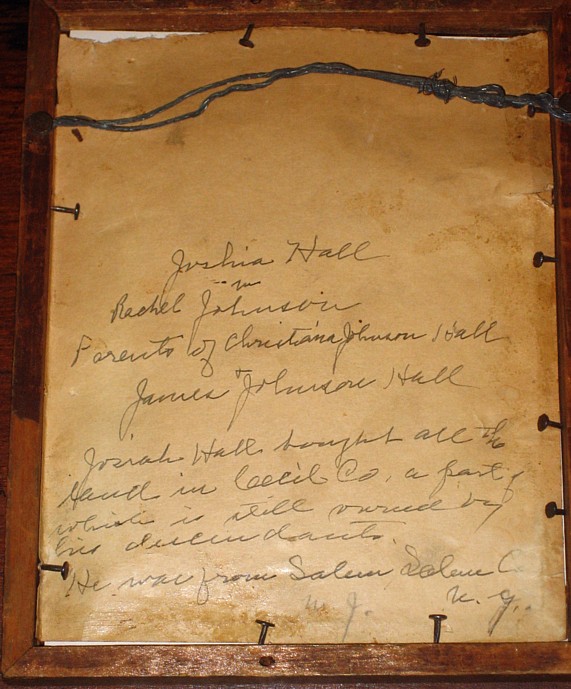 Joshia Hall
m
Rachel Johnson
Parents of Christiana Johnson Hall
+
James Johnson Hall
Josiah Hall bought all the
land in Cecil Co. a part of
which is still owned by
his descendants.
He was from Salem Salem C
N. J. N. J.